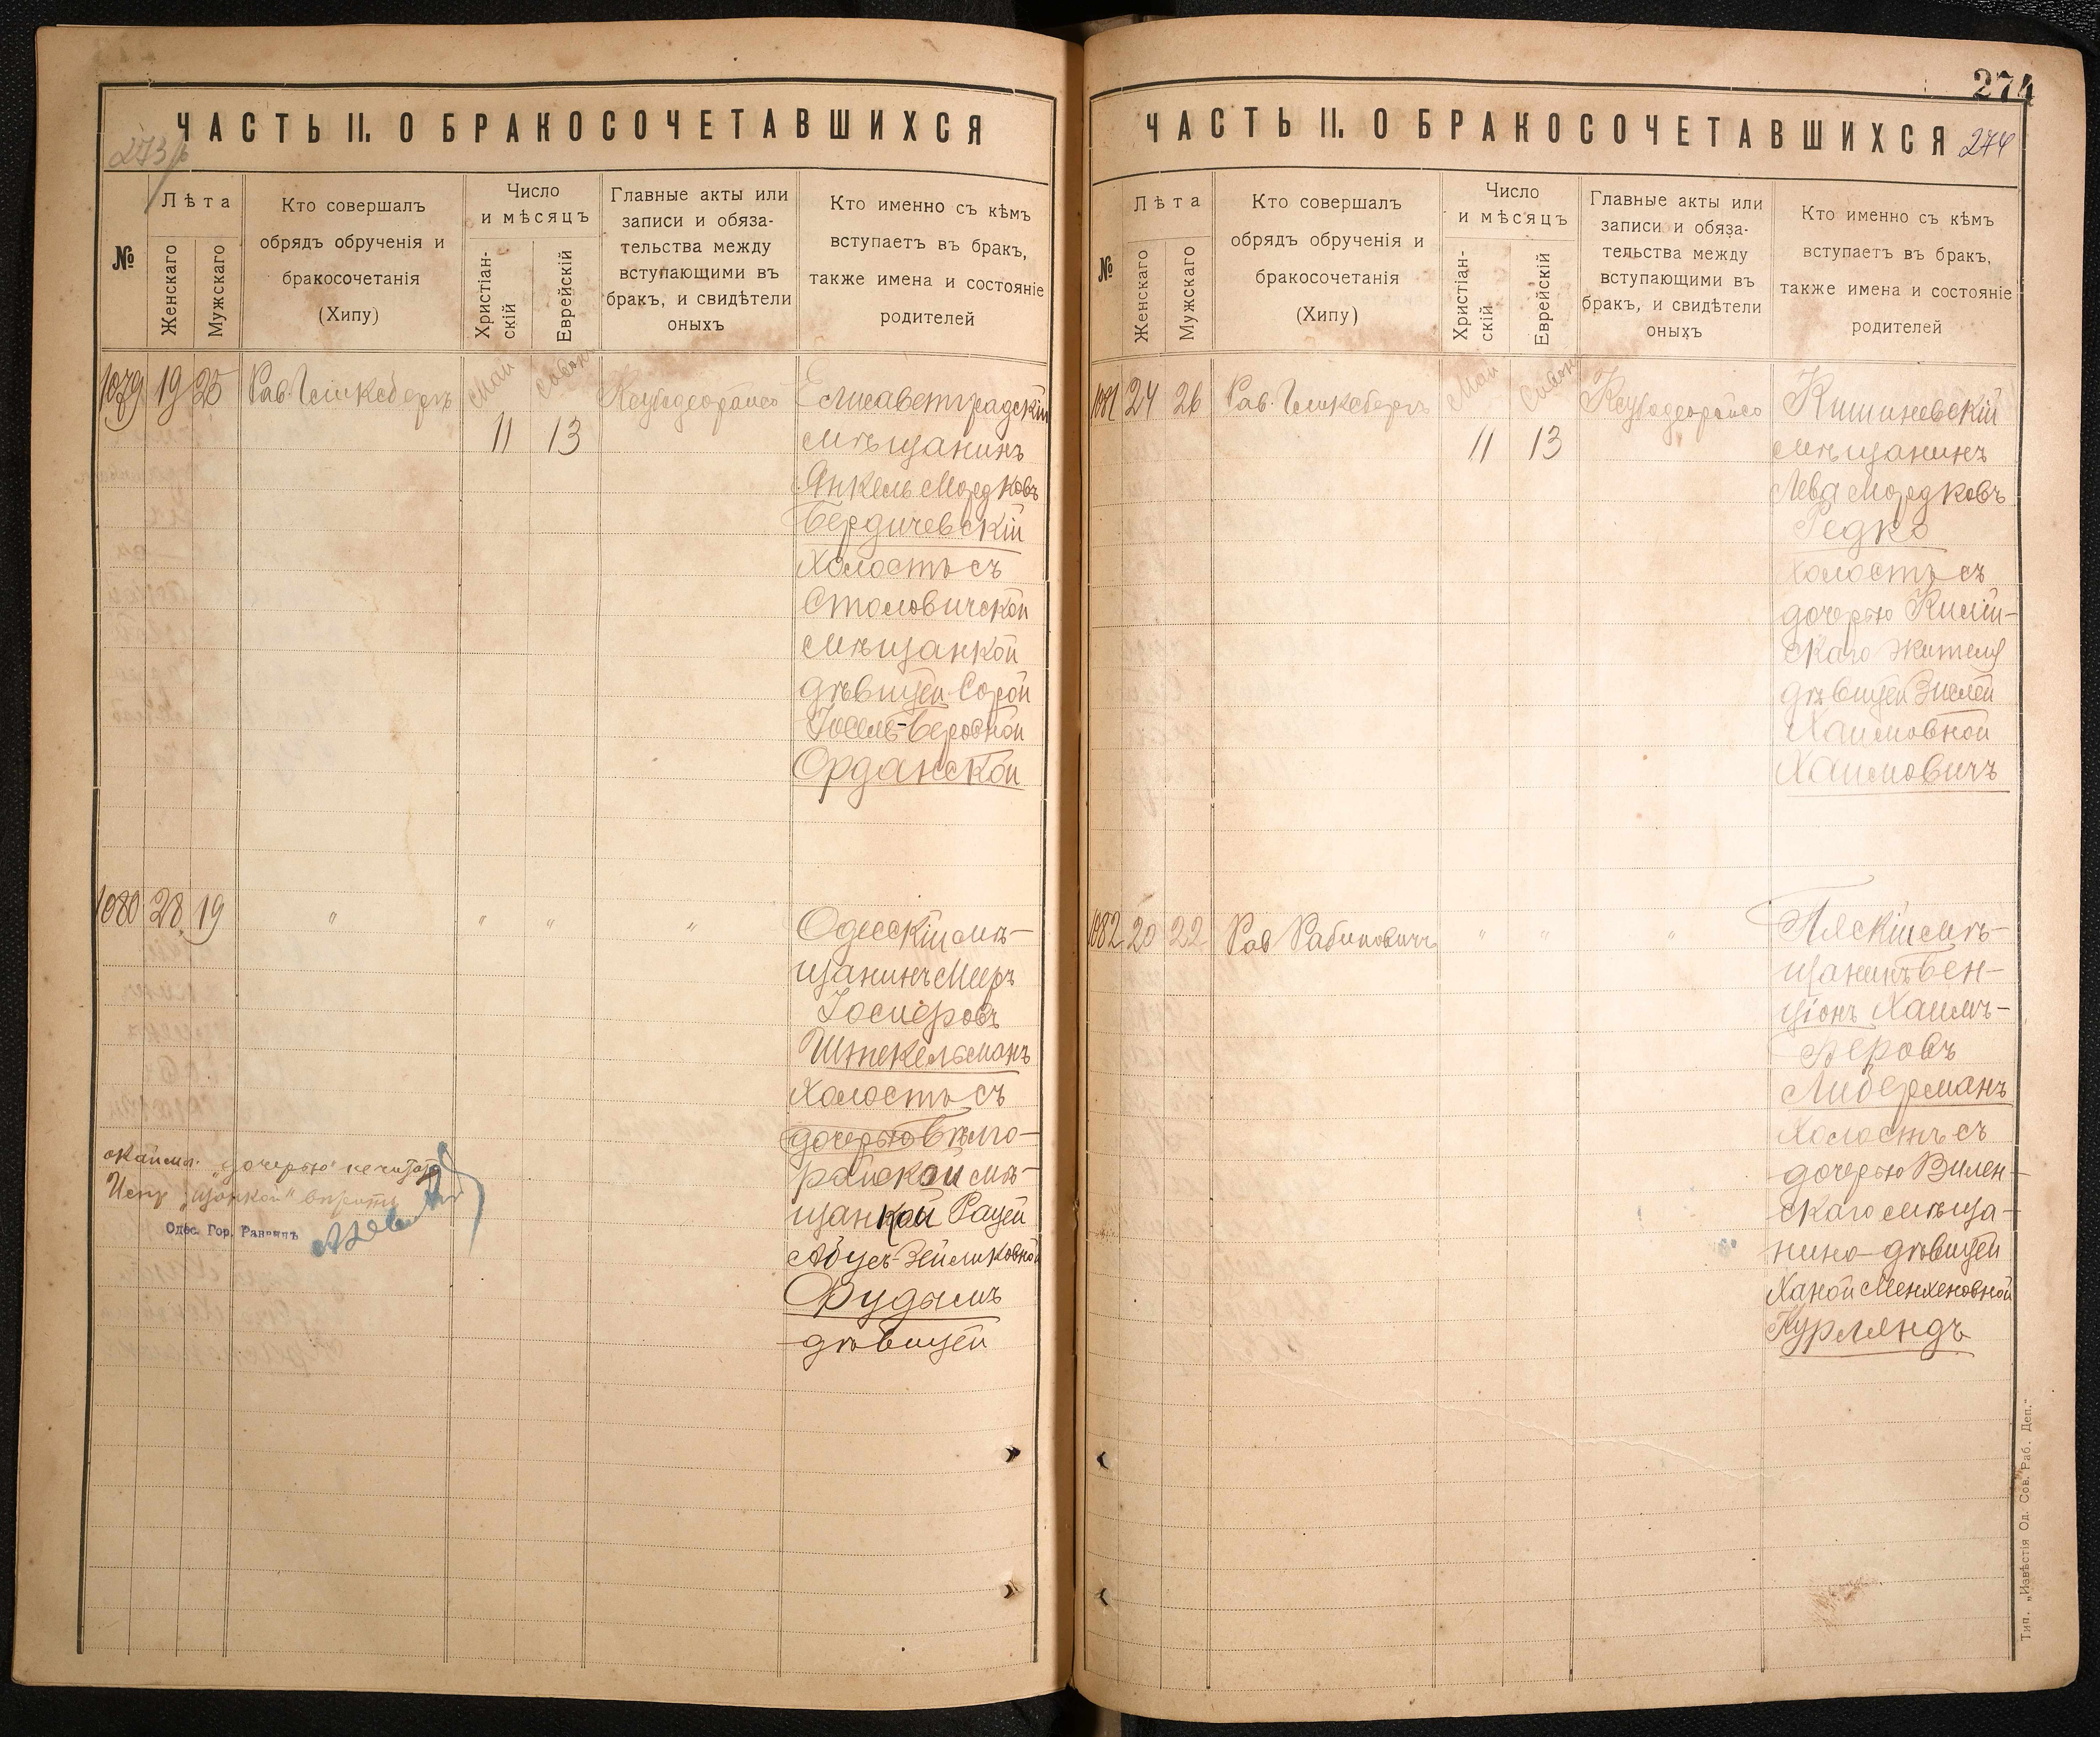 ЧАСТЬ II. О БРАКОСОЧЕТАВШИХСЯ
273
№
Лѣта
Женскаго
Мужскаго
Кто совершалъ
обрядъ обрученія и
бракосочетанія
(Хипу)
Число
и мѣсяцъ
Христіан-
скій
Еврейскій
Главные акты или
записи и обяза-
тельства между
вступающими въ
бракъ, и свидѣтели
оныхъ
Кто именно съ кѣмъ
вступаетъ въ бракъ,
также имена и состояніе
родителей
1079 19 25 Рав. Май Елисаветградскій
11 13 мѣщанинъ
Янкель Мордковъ
Бердичевскій
холостъ съ
Столовичской
мѣщанкой
дѣвицей Сорой
Іосель-Беровной
Орданской
1080 28 19 " " " " Одесскій мѣ-
щанинъ Мееръ
Іосифовъ
Штекельманъ
холостъ съ
дочерью Бѣлго-
райской мѣ-
щанкой Рацей
Абусъ-Зейликовной
Фудымъ
дѣвицей
"дочерью" не читать
Испр. "щанкой" вѣрить
Одес. Гор. Раввинъ
274
ЧАСТЬ II. О БРАКОСОЧЕТАВШИХСЯ
274
№
Лѣта
Женскаго
Мужскаго
Кто совершалъ
обрядъ обрученія и
бракосочетанія
(Хипу)
Число
и мѣсяцъ
Христіан-
скій
Еврейскій
Главные акты или
записи и обяза-
тельства между
вступающими въ
бракъ, и свидѣтели
оныхъ
Кто именно съ кѣмъ
вступаетъ въ бракъ,
также имена и состояніе
родителей
1081 24 26 Рав. Май Кишиневскій
11 13 мѣщанинъ
Лейва Мордковъ
Редко
холостъ съ
дочерью Килій-
скаго жителя
дѣвицей Зислей
Хаимовной
Хаимовичъ
1082 20 22 Рав Рабиновичъ " " " Пяскій мѣ-
щанинъ Бен-
ціонъ Хаимъ-
Беровъ
Либерманъ
холостъ съ
дочерью Вилен-
скаго мѣща-
нина дѣвицей
Ханой Менхеновной
Курляндъ
Тип. „Извѣстія Од. Сов. Раб. Деп."